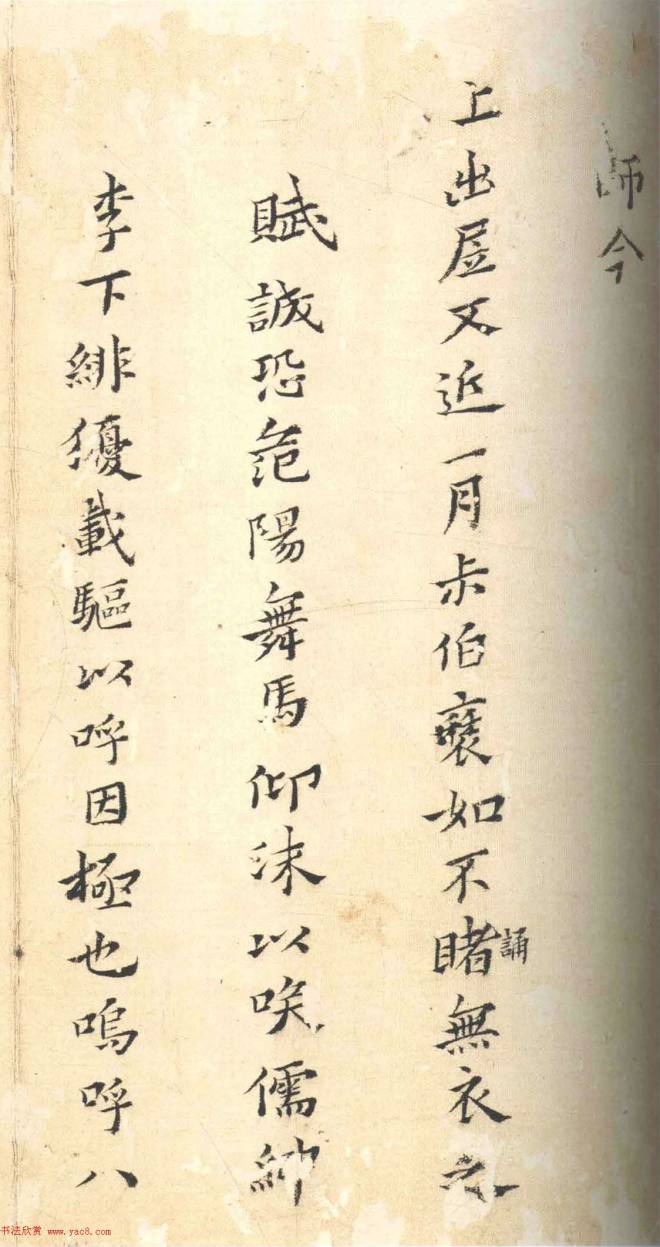 師今
上出居又近一月尗伯褎如不睹誦無衣之
賦誠恐范陽舞馬仰沫以唉儒紳
李下緋優載驅以呼因極也嗚呼八
书法欣赏 www.yac8.com